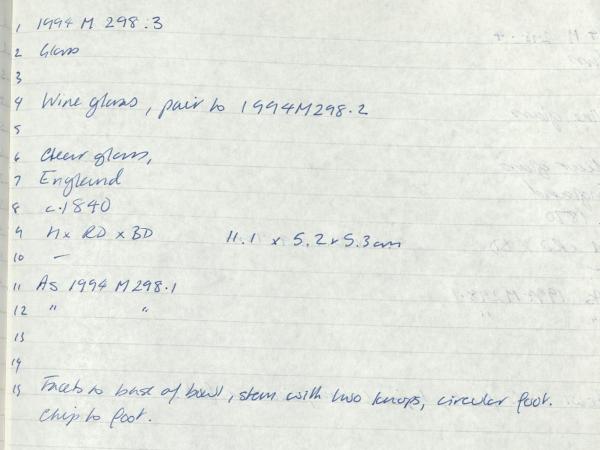 1 1994 M 298.3
2 Glass
3
4 Wine glass, pair to 1994M298.2
5
6 Clear glass,
7 England
8 c.1840
9 H x RD x BD 11.1 x 5.2 x 5.3 cm
10 –
11 As 1994 M298.1
12 " "
13
14
15 Facets to base of bowl, stem with two knops, circular foot.
Chip to foot.